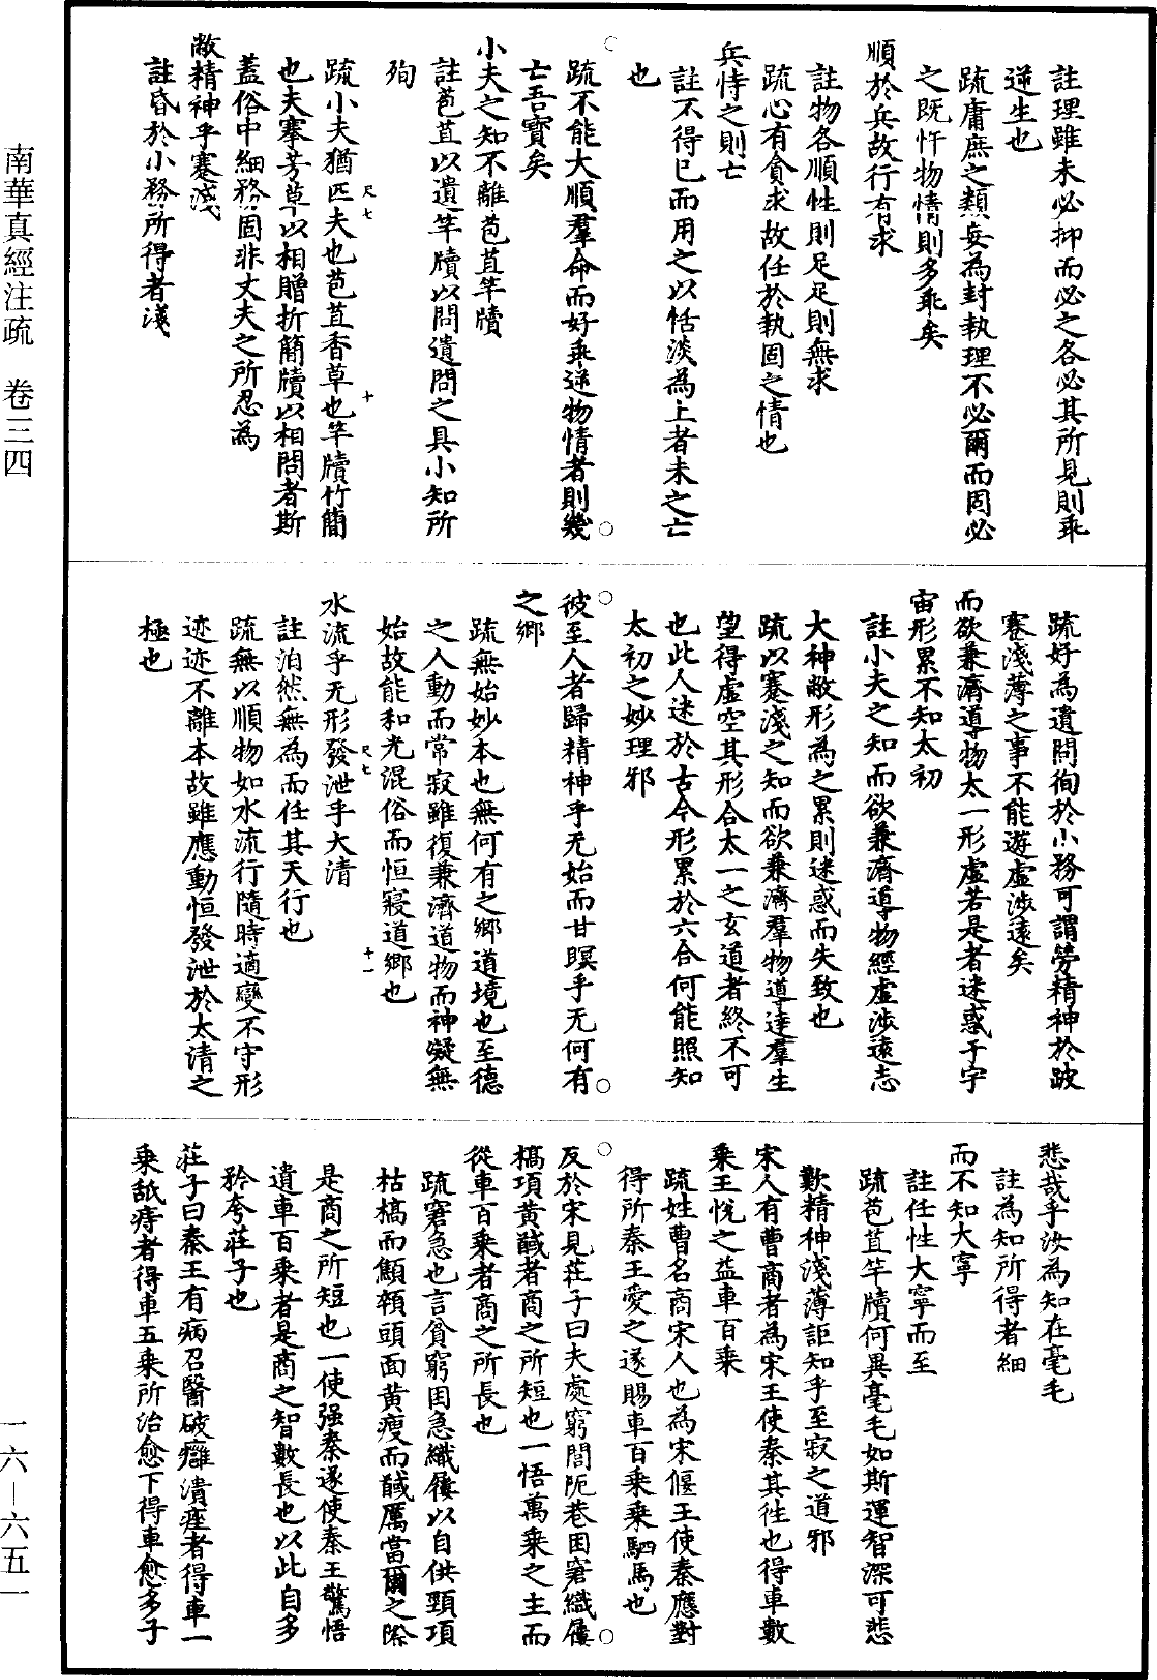 註理雖未必抑而必之各必其所見則乖
逆生也
疏庸庶之類妄為封執理不必爾而固必
之既忤物情則多乖矣
順於兵故行有求
註物各順性則足足則無求
疏心有貪求故任於執固之情也
兵恃之則亡
註不得已而用之以恬淡為上者未之亡
也
疏不能大順羣命而好乖逆物情者則幾
亡吾寳矣
小夫之知不離苞苴竿牘
註苞苴以遺竿牘以問遺問之具小知所
殉
疏小夫猶匹夫也苞苴香草也竿牘竹簡
也夫搴芳草以相贈折簡牘以相問者斯
蓋俗中細務固非丈夫之所忍為
敝精神乎蹇淺
註昏於小務所得者淺
疏好為遺問徇於小務可謂勞精神於跛
蹇淺薄之事不能遊虛涉遠矣
而欲兼濟導物太一形虛若是者迷惑于宇
宙形累不知太初
註小夫之知而欲兼濟導物經虛涉遠志
大神敝形為之累則迷惑而失致也
疏以蹇淺之知而欲兼濟羣物導達羣生
望得虛空其形合太一之玄道者終不可
也此人迷於古今形累於六合何能照知
太初之妙理邪
彼至人者歸精神乎无始而甘暝乎无何有
之鄉
疏無始妙本也無何有之鄉道境也至德
之人動而常寂雖復兼濟道物而神凝無
始故能和光混俗而恒寢道鄉也
水流乎无形發泄乎大清
註泊然無為而任其天行也
疏無以順物如水流行隨時適變不守形
迹迹不離本故雖應動恒發泄於太清之
極也
悲哉乎汝為知在毫毛
註為知所得者細
而不知大寧
註任性大寧而至
疏苞苴竿牘何異毫毛如斯運智深可悲
歎精神淺薄詎知乎至寂之道邪
宋人有曹商者為宋王使秦其往也得車數
乘王悅之益車百乘
疏姓曹名商宋人也為宋偃王使秦應對
得所秦王愛之遂賜車百乘乘駟馬也
反於宋見莊子曰夫處窮閭阨巷困窘織屨
槁項黃馘者商之所短也一悟萬乘之主而
從車百乘者商之所長也
疏窘急也言貧窮困急織屨以自供頸項
枯槁而顦顇頭面黃瘦而馘厲當爾之際
是商之所短也一使强秦遂使秦王驚悟
遺車百乘者是商之智數長也以此自多
矜夸莊子也
莊子曰秦王有病召醫破癰潰痤者得車一
乘舐痔者得車五乘所治愈下得車愈多子
尺七
十
尺七
十一
南華真經注疏 卷三四
一六—六五一